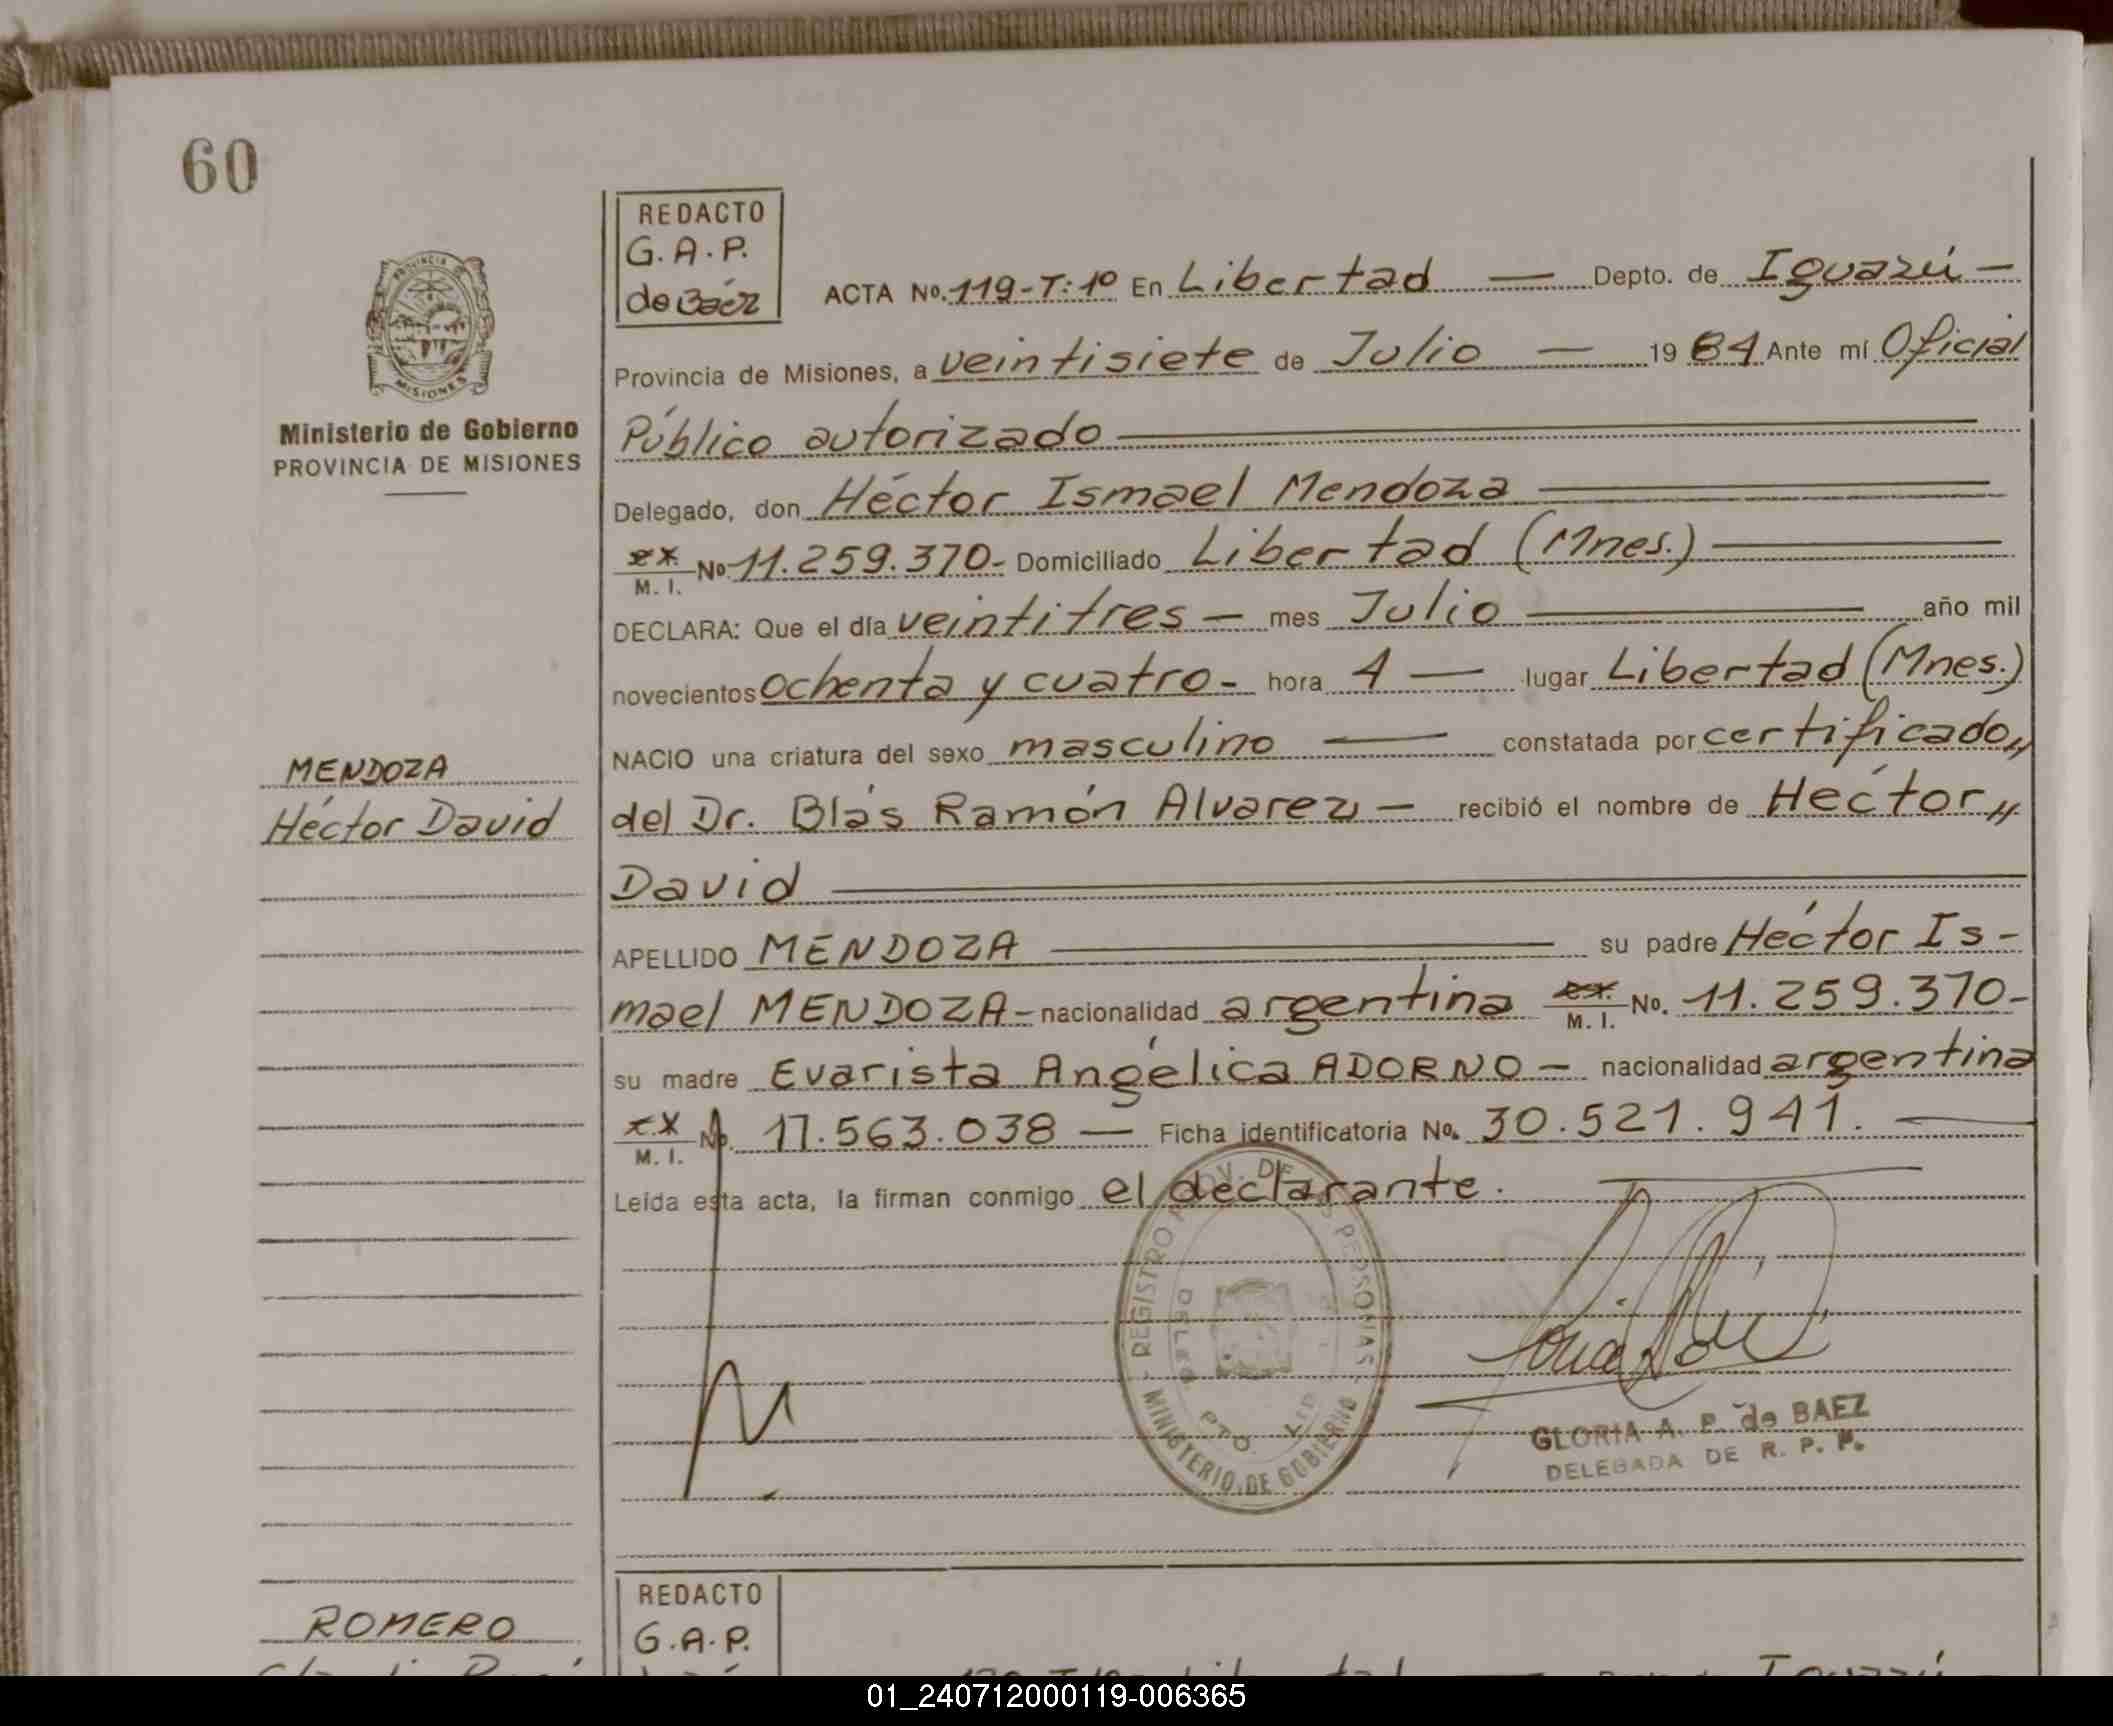 60
REDACTO
G. A. P.
de Baéz
PROVINCIA DE
MISIONES
Ministerio de Gobierno
PROVINCIA DE MISIONES
ACTA No. 119-T:1º En Libertad — Depto. de Iguazú —
Provincia de Misiones, a veintisiete de Julio — 19 84 Ante mí Oficial
Público autorizado
Delegado, don Héctor Ismael Mendoza
M. I. No. 11.259.370- Domiciliado Libertad (Mnes.)
DECLARA: Que el día veintitres — mes Julio — año mil
novecientos ochenta y cuatro - hora 4 — lugar Libertad (Mnes.)
NACIO una criatura del sexo masculino — constatada por certificado,,
MENDOZA
Héctor David
del Dr. Blás Ramón Alvarez — recibió el nombre de Héctor,,
David
APELLIDO MENDOZA — su padre Héctor Is-
mael MENDOZA - nacionalidad argentina M. I. No. 11.259.370-
su madre Evarista Angélica ADORNO — nacionalidad argentina
M. I. No. 17.563.038 — Ficha identificatoria No. 30.521.941. —
Leída esta acta, la firman conmigo el declarante.
REGISTRO PROV. DE PERSONAS
MINISTERIO DE GOBIERNO
GLORIA A. P. de BAEZ
DELEGADA DE R. P. P.
REDACTO
G. A. P.
ROMERO
01_240712000119-006365